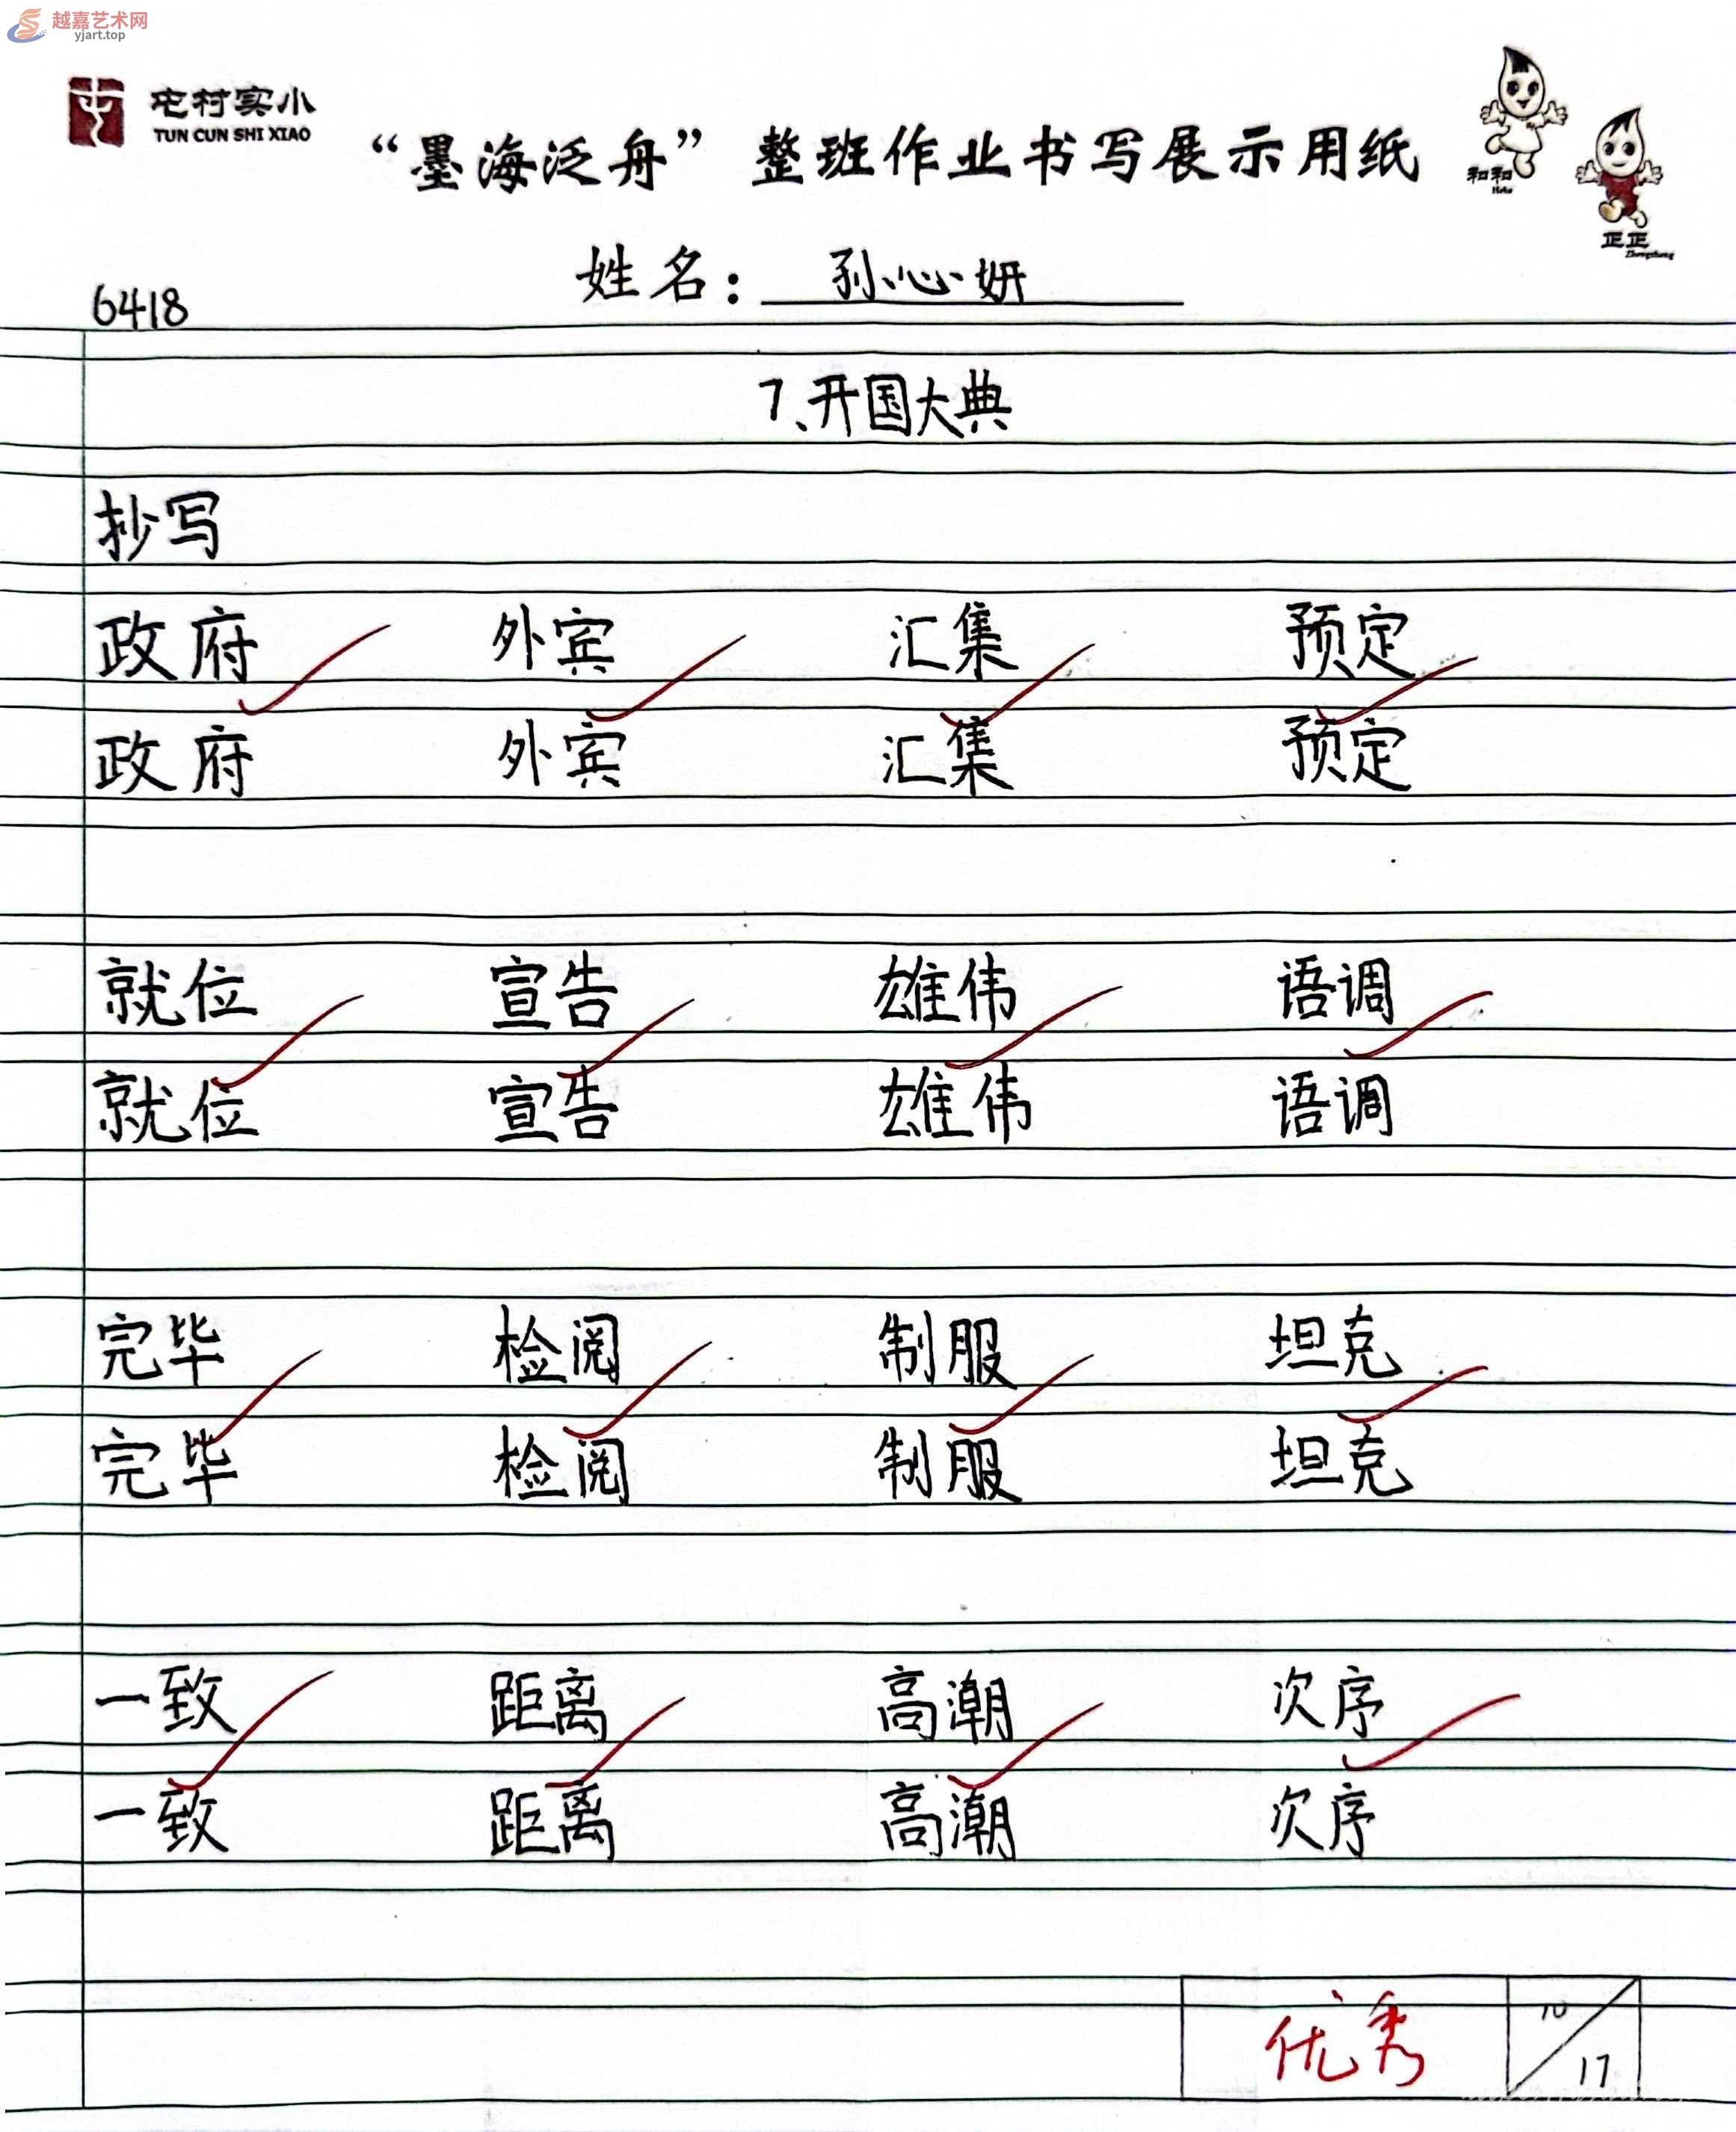 越嘉艺术网
yjart.top
屯村实小
TUN CUN SHI XIAO
“墨海泛舟”整班作业书写展示用纸
和和
Hehe
正正
Zhengzheng
姓名：孙心妍
6418
7、开国大典
抄写
政府 外宾 汇集 预定
政府 外宾 汇集 预定
就位 宣告 雄伟 语调
就位 宣告 雄伟 语调
完毕 检阅 制服 坦克
完毕 检阅 制服 坦克
一致 距离 高潮 次序
一致 距离 高潮 次序
优秀 10/17